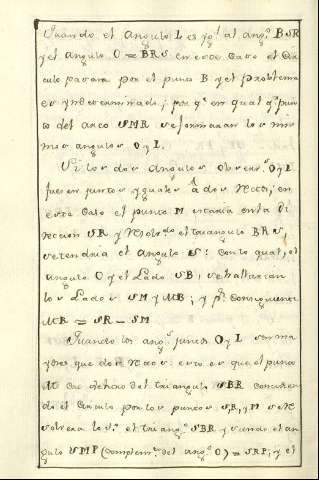 Quando el angulo L es yg.l al ang.o BSR
y el angulo O = BRS en este caso el Cir
culo pasara por el punto B y el problema
es yndeterminado; por q.e en qual q.e pun
to del arco SMR se formaran los mis
mos angulos O y L.
Si los dos angulos observ.s O y L
fuesen juntos yguales â dos rectos, en
este Caso el punto M estaria en la Di
reccion SR y resolv.do el triangulo BRS,
se tendria el angulo S: con lo qual, el
angulo O y el Lado SB, se hallarian
los Lados SM y MB; y p.r Consiguiente
MR = SR - SM
Quando los ang.s juntos O y L son ma
yores que dos rectos: esto es que el punto
M cae dentro del triangulo SBR
do el Circulo por los puntos S, R, y M se re
solvera lo 1.o el triang.o SBR y siendo el an
gulo SMP (complem.to del ang.o O) = SRP; y el